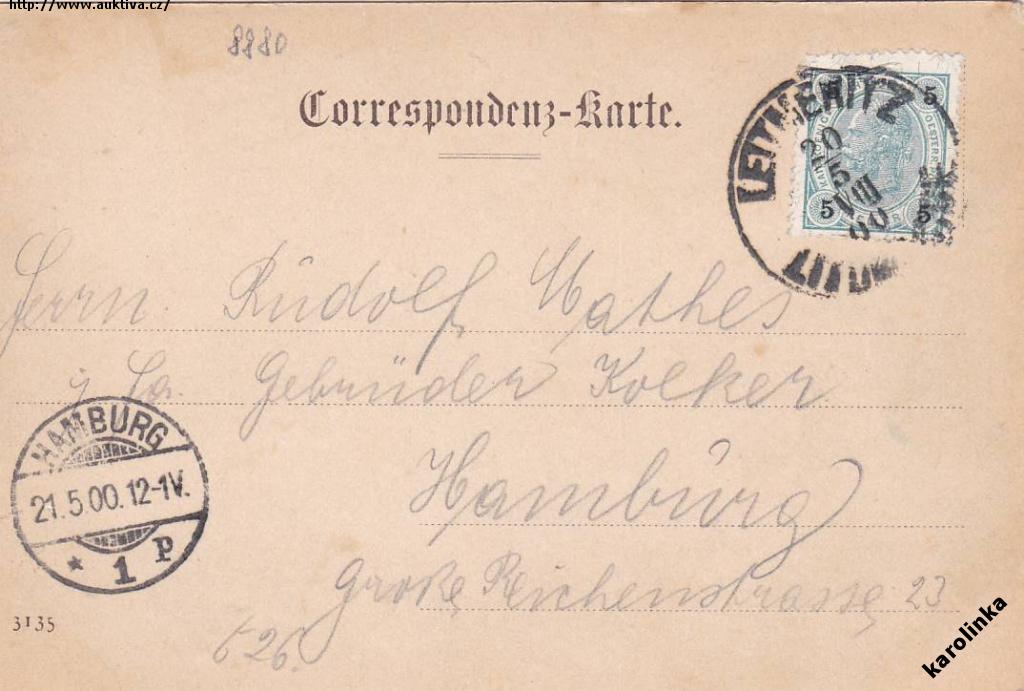 http://www.auktiva.cz/
8880
Correspondenz-Karte.
LEITMERITZ
20
5
VIII
00
5
5
5
Herrn Rudolf Mathes
Gebrüder Kolker
Hamburg
Große Reichenstrasse 23
HAMBURG
21.5.00.12-1V.
* 1 P
3135
626.
karolinka